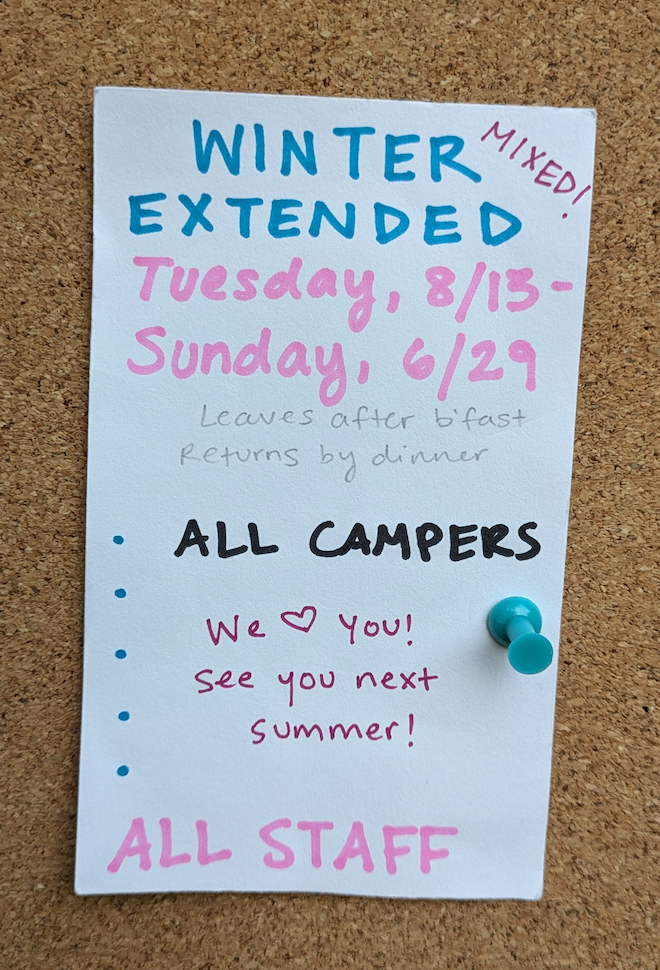 WINTER MIXED!
EXTENDED
Tuesday, 8/13-
Sunday, 6/29
Leaves after b'fast
Returns by dinner
• ALL CAMPERS
•
• We ♡ you!
see you next
• summer!
•
ALL STAFF